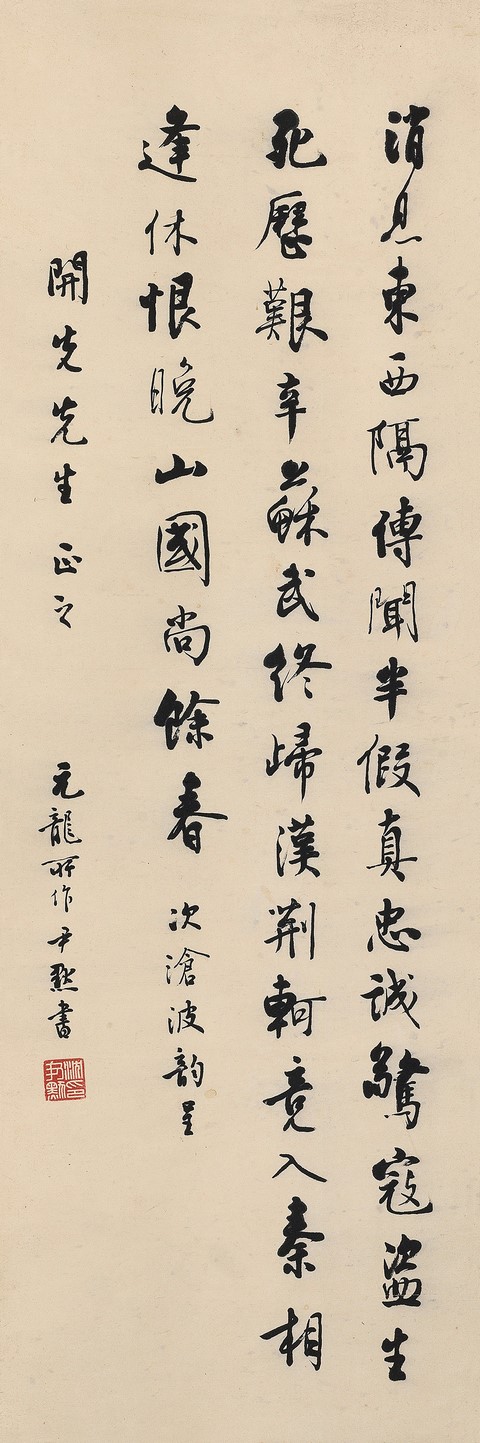 消息東西隔傳聞半假真忠誠驚寇盜生
死歷艱辛蘇武終歸漢荊軻竟入秦相
逢休恨晚山國尚餘春 次滄波韵呈
開先先生正之 元龍所作尹默書
沈尹默印